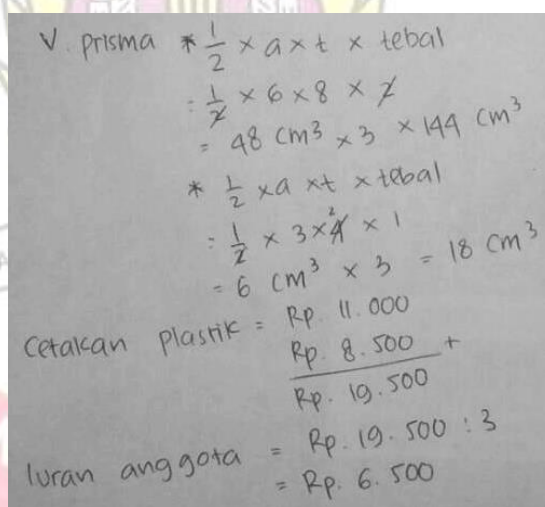 V. prisma * 1/2 × a × t × tebal
= 1/2 × 6 × 8 × 2
= 48 cm³ × 3 × 144 cm³
* 1/2 × a × t × tebal
= 1/2 × 3 × 4 2 × 1
= 6 cm³ × 3 = 18 cm³
Cetakan plastik = Rp. 11.000
Rp. 8.500 +
Rp. 19.500
Iuran anggota = Rp. 19.500 : 3
= Rp. 6.500